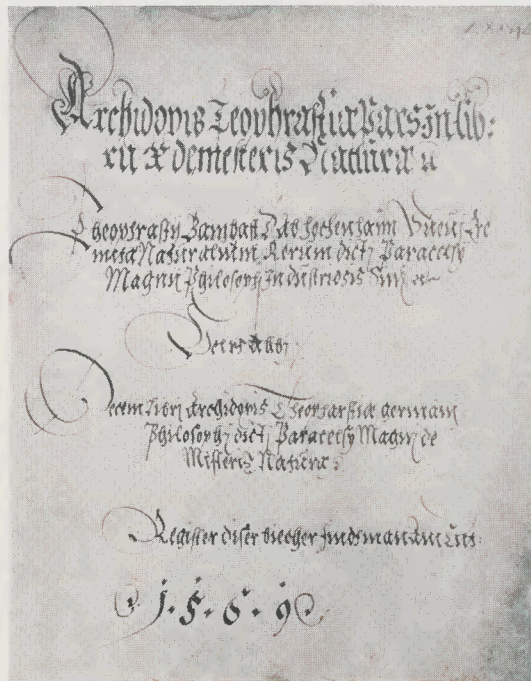 Archidoxis Teophrastia Pars In lib:
rū X de mesteris Natura
Theophrasty Bambast D ab Hochenhaim
mita Naturalium Rerum dictj Paracelsy
Magnj Philosophj Industriosis
Decem librj Archidoxis Theophrastiæ germanj
Philosophj dictj Paracelsy Magnj de
Misterijs Naturæ:
Register diser biecher findt man am End:
1·5·6·9